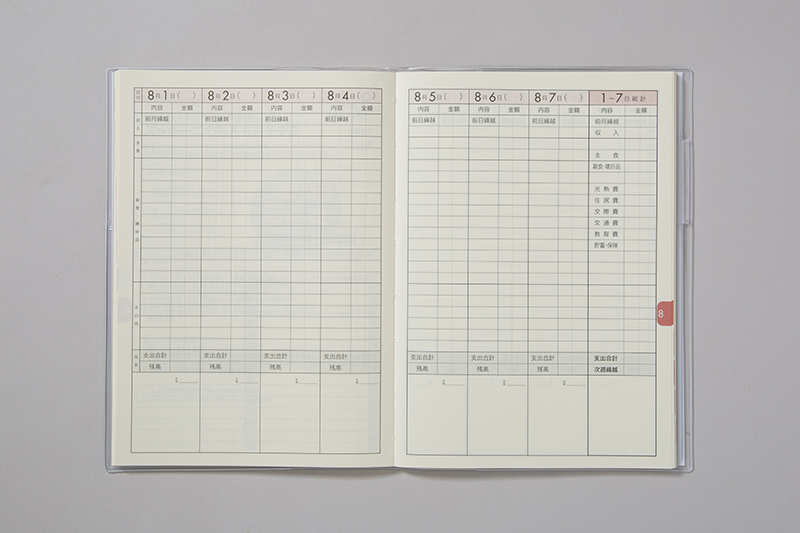 日付 8月1日( ) 8月2日( ) 8月3日( ) 8月4日( )
内容 金額 内容 金額 内容 金額 内容 金額
収入 前月繰越 前日繰越 前日繰越 前日繰越
主食
副食・嗜好品
その他
残高 支出合計 支出合計 支出合計 支出合計
残高 残高 残高 残高
8月5日( ) 8月6日( ) 8月7日( ) 1~7日総計
内容 金額 内容 金額 内容 金額 内容 金額
前日繰越 前日繰越 前日繰越 前月繰越
収入
主食
副食・嗜好品
光熱費
住居費
交際費
交通費
教育費
貯蓄・保険
8
支出合計 支出合計 支出合計 支出合計
残高 残高 残高 次週繰越